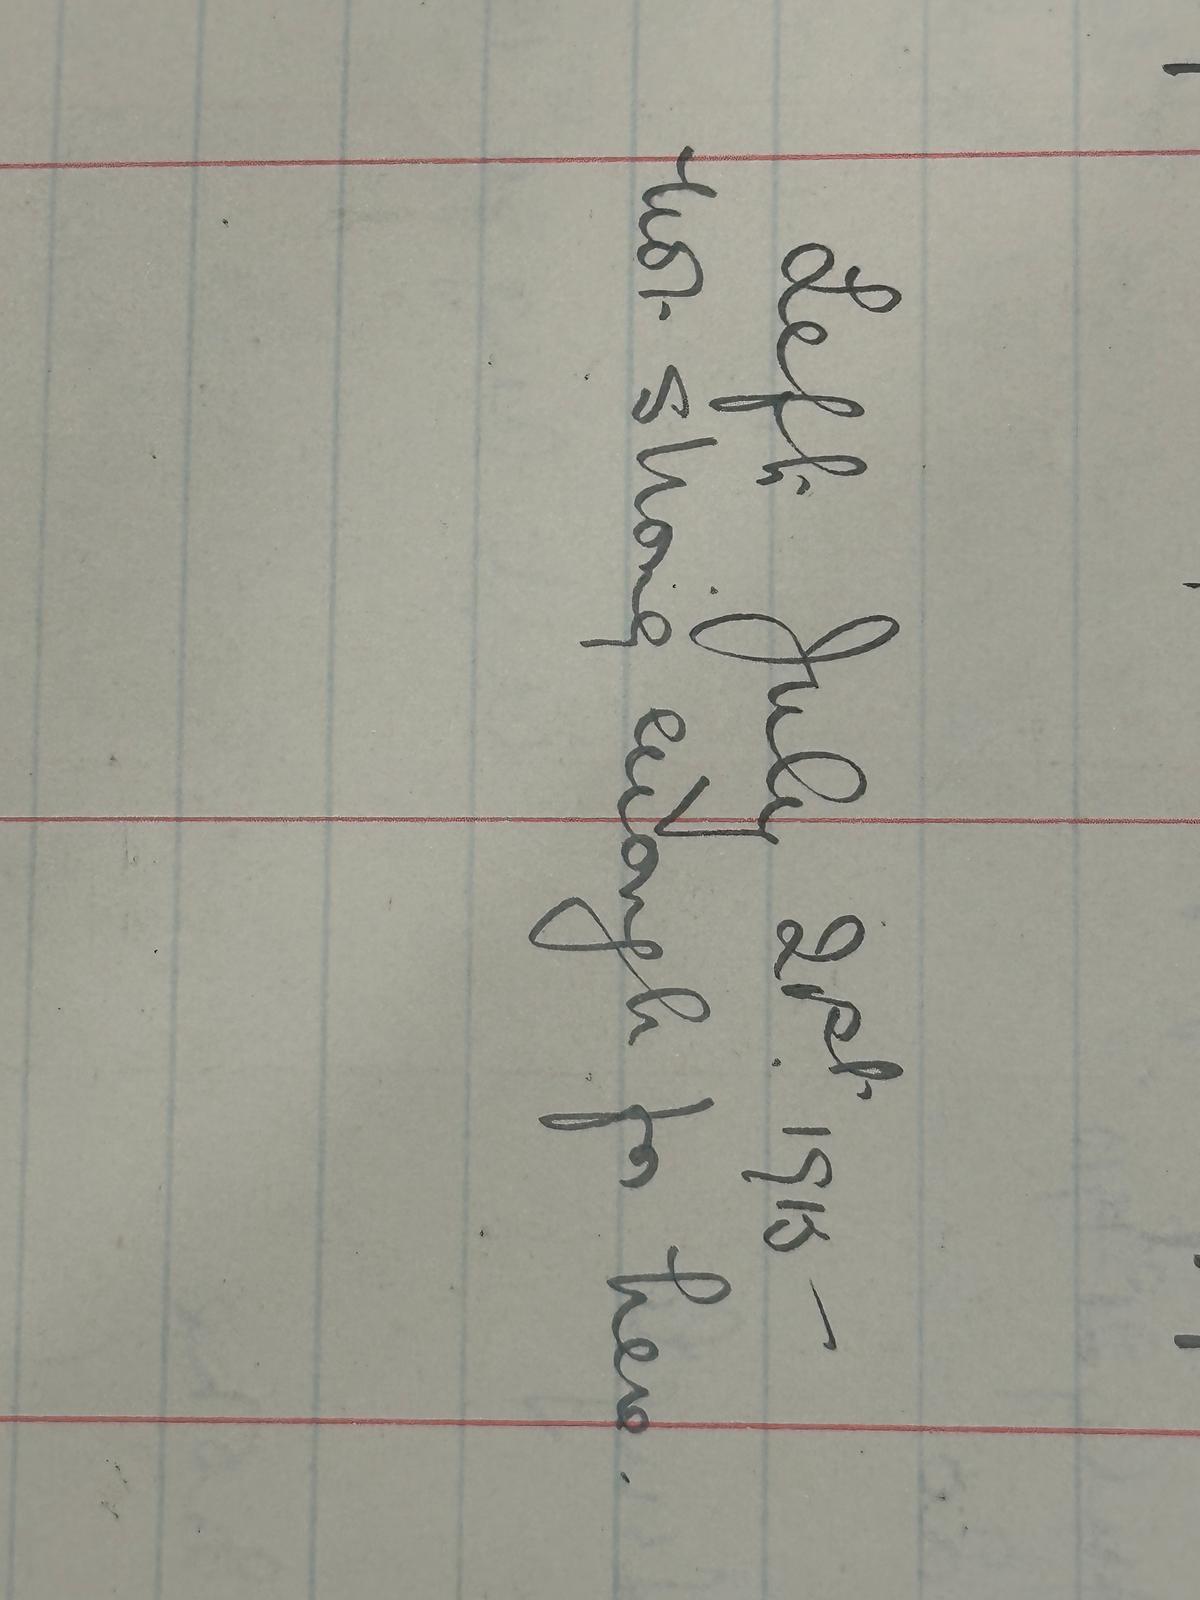 Left July 21st. 1915 –
Not strong enough for here.